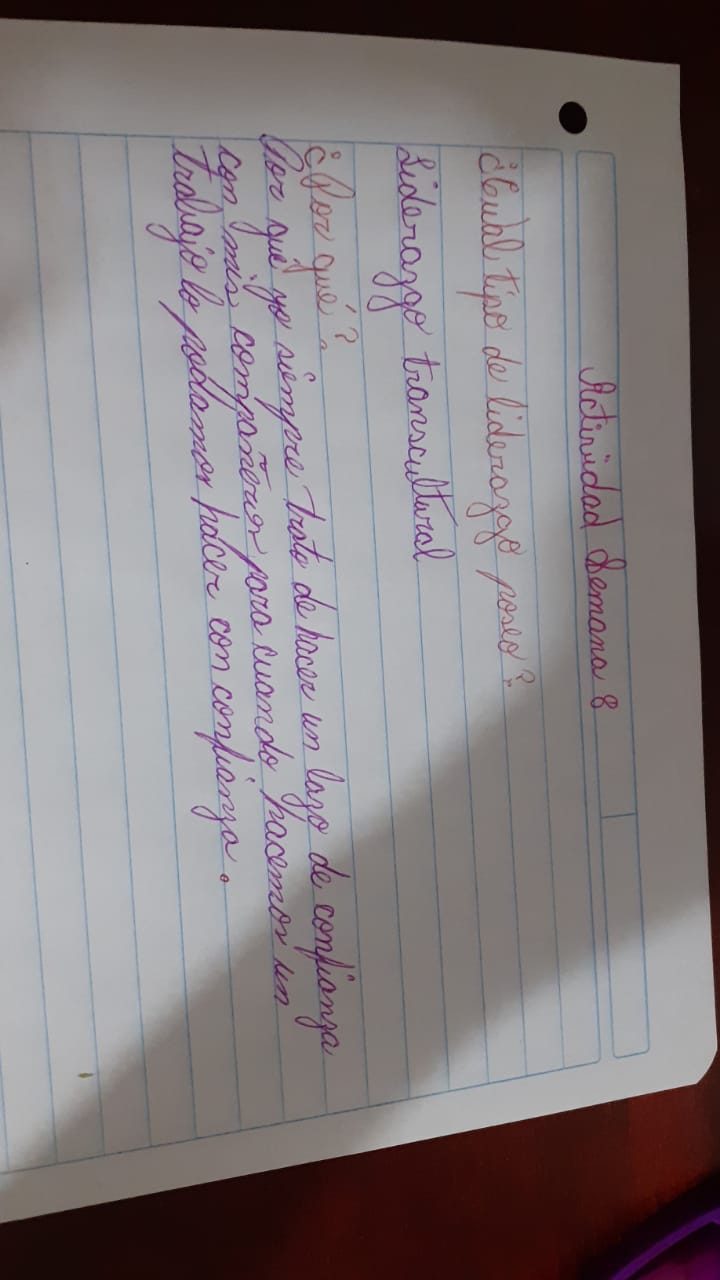 Actividad Semana 8
¿Cuál tipo de liderazgo poseo?
Liderazgo transcultural
¿Por qué?
Por qué yo siempre trato de hacer un lazo de confianza
con mis compañeros para cuando hacemos un
trabajo lo podamos hacer con confianza.